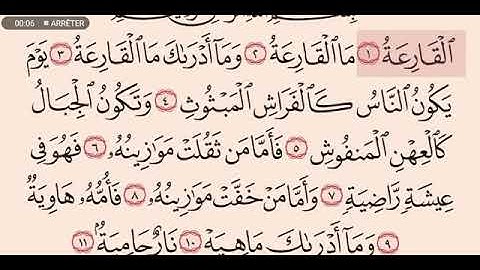 00:06 ■ ARRÊTER
ٱلۡقَارِعَةُ ١ مَا ٱلۡقَارِعَةُ ٢ وَمَآ أَدۡرَىٰكَ مَا ٱلۡقَارِعَةُ ٣ يَوۡمَ
يَكُونُ ٱلنَّاسُ كَٱلۡفَرَاشِ ٱلۡمَبۡثُوثِ ٤ وَتَكُونُ ٱلۡجِبَالُ
كَٱلۡعِهۡنِ ٱلۡمَنفُوشِ ٥ فَأَمَّا مَن ثَقُلَتۡ مَوَٰزِينُهُۥ ٦ فَهُوَ فِي
عِيشَةٖ رَّاضِيَةٖ ٧ وَأَمَّا مَنۡ خَفَّتۡ مَوَٰزِينُهُۥ ٨ فَأُمُّهُۥ هَاوِيَةٞ
٩ وَمَآ أَدۡرَىٰكَ مَا هِيَهۡ ١٠ نَارٌ حَامِيَةُۢ ١١